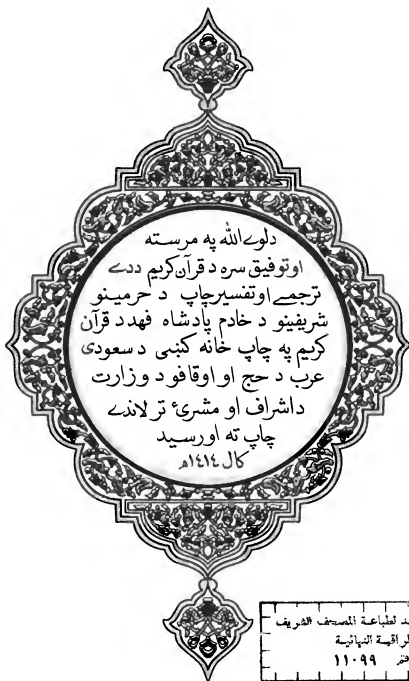 دلوے الله په مرسته
اوتوفيق سره د قرآن کريم ددے
ترجمے اوتفسير چاپ د حرمينو
شريفينو د خادم پادشاه فهد د قرآن
کريم په چاپ خانه کښی د سعودی
عرب د حج او اوقافو د وزارت
داشراف او مشرئ تر لاندے
چاپ ته اورسيد
کال ١٤١٤ه
لطباعة المصحف الشريف
النهائية
١١٠٩٩